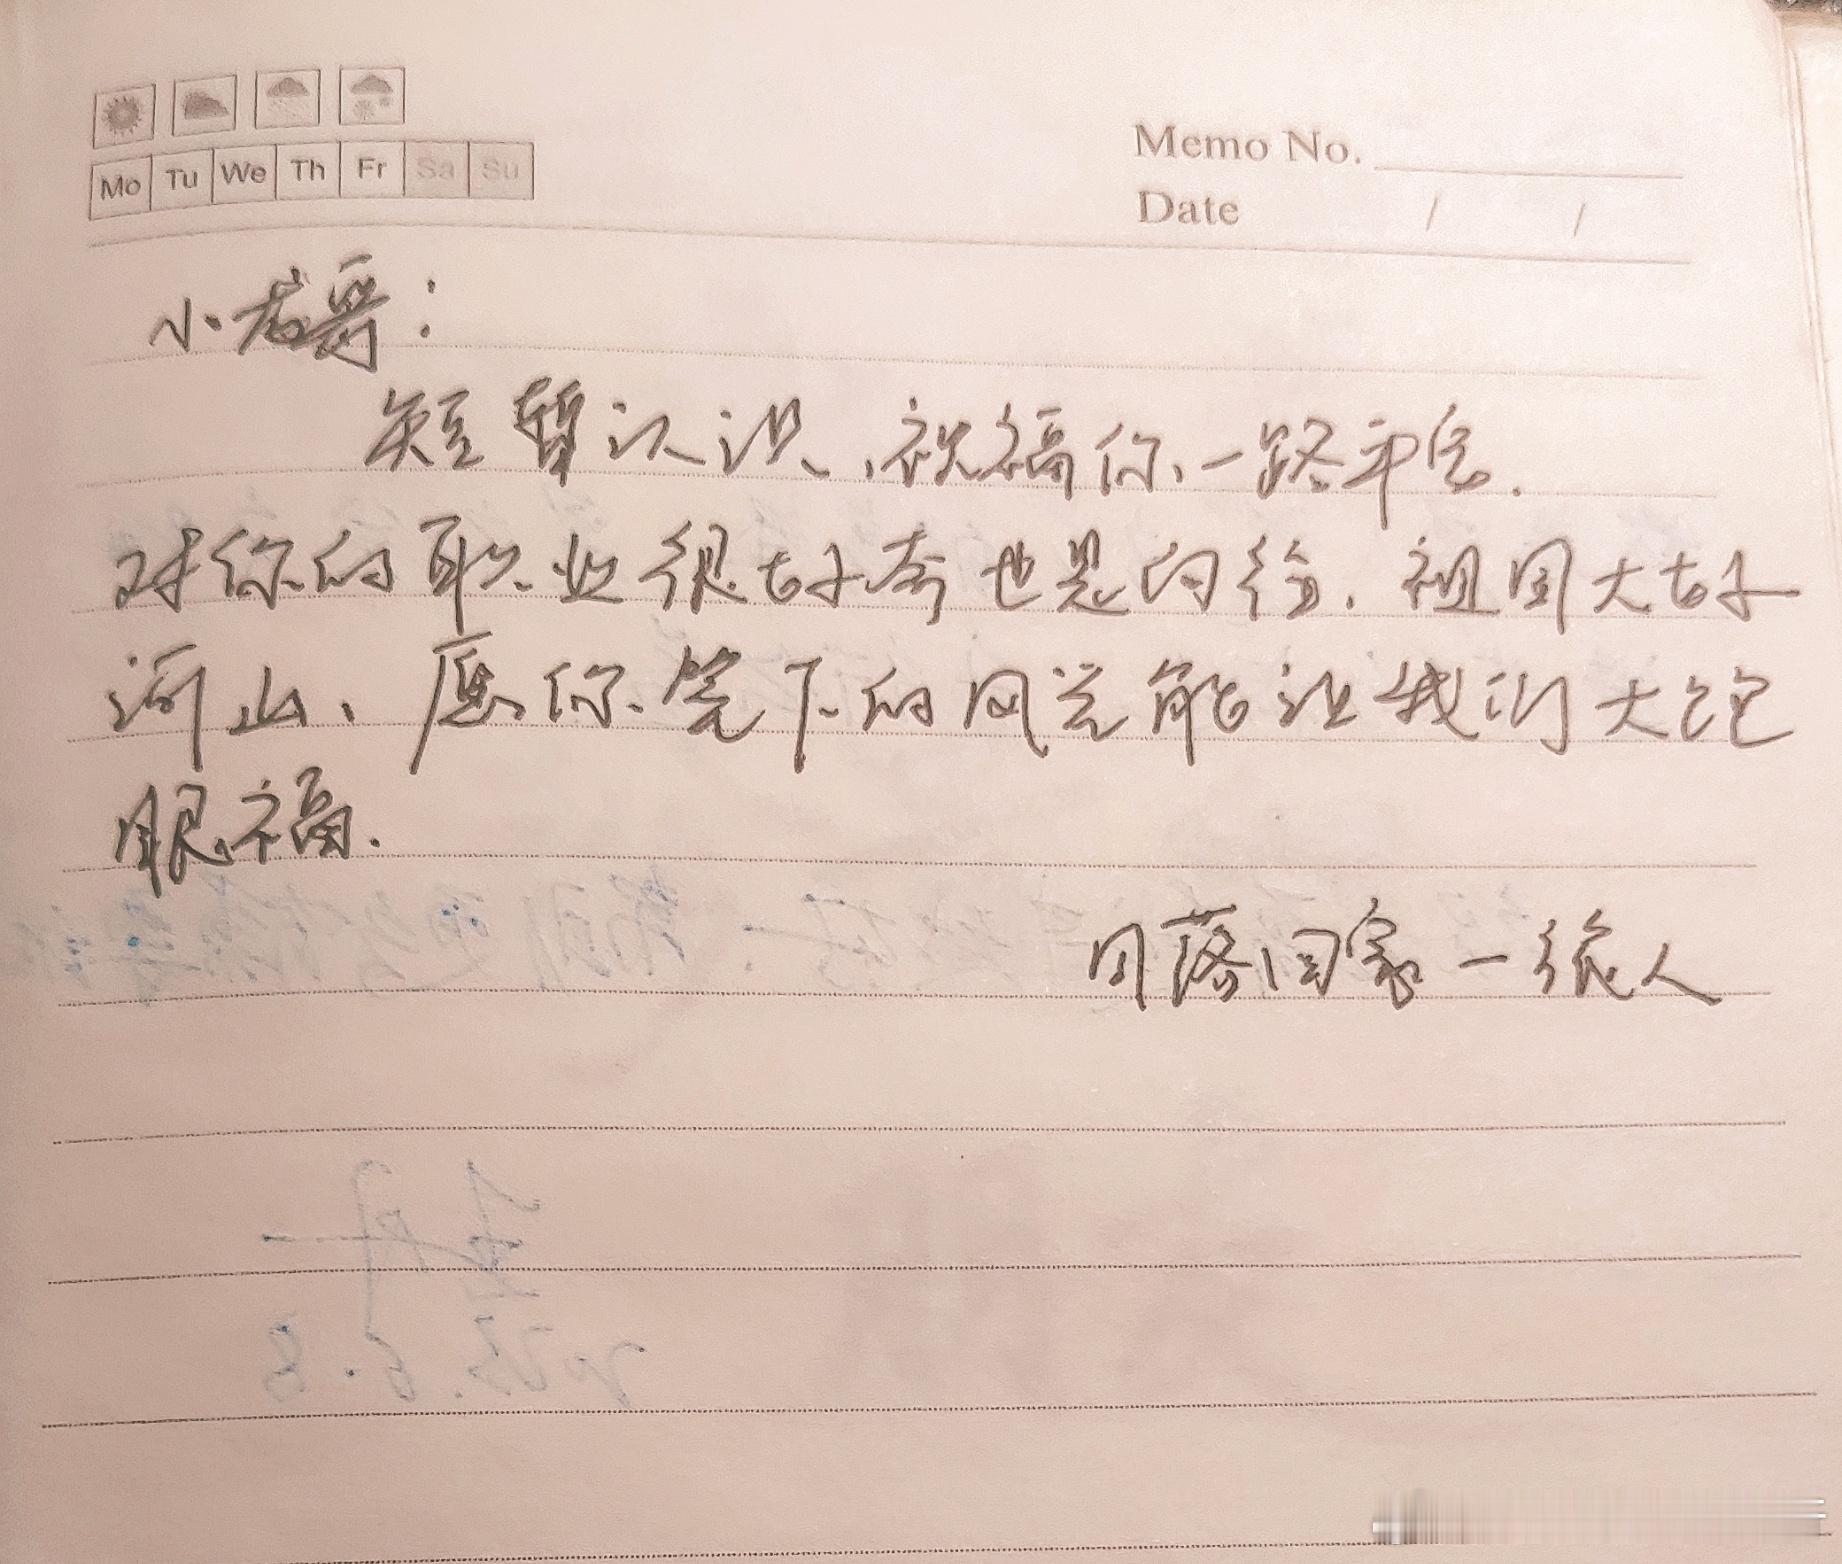 Mo Tu We Th Fr Sa Su
Memo No.
Date / /
小龙哥：
短暂认识，祝福你，一路平安.
对你的职业很好奇也是向往，祖国大好
河山、愿你笔下的风光能让我们大饱
眼福.
日落回家一旅人